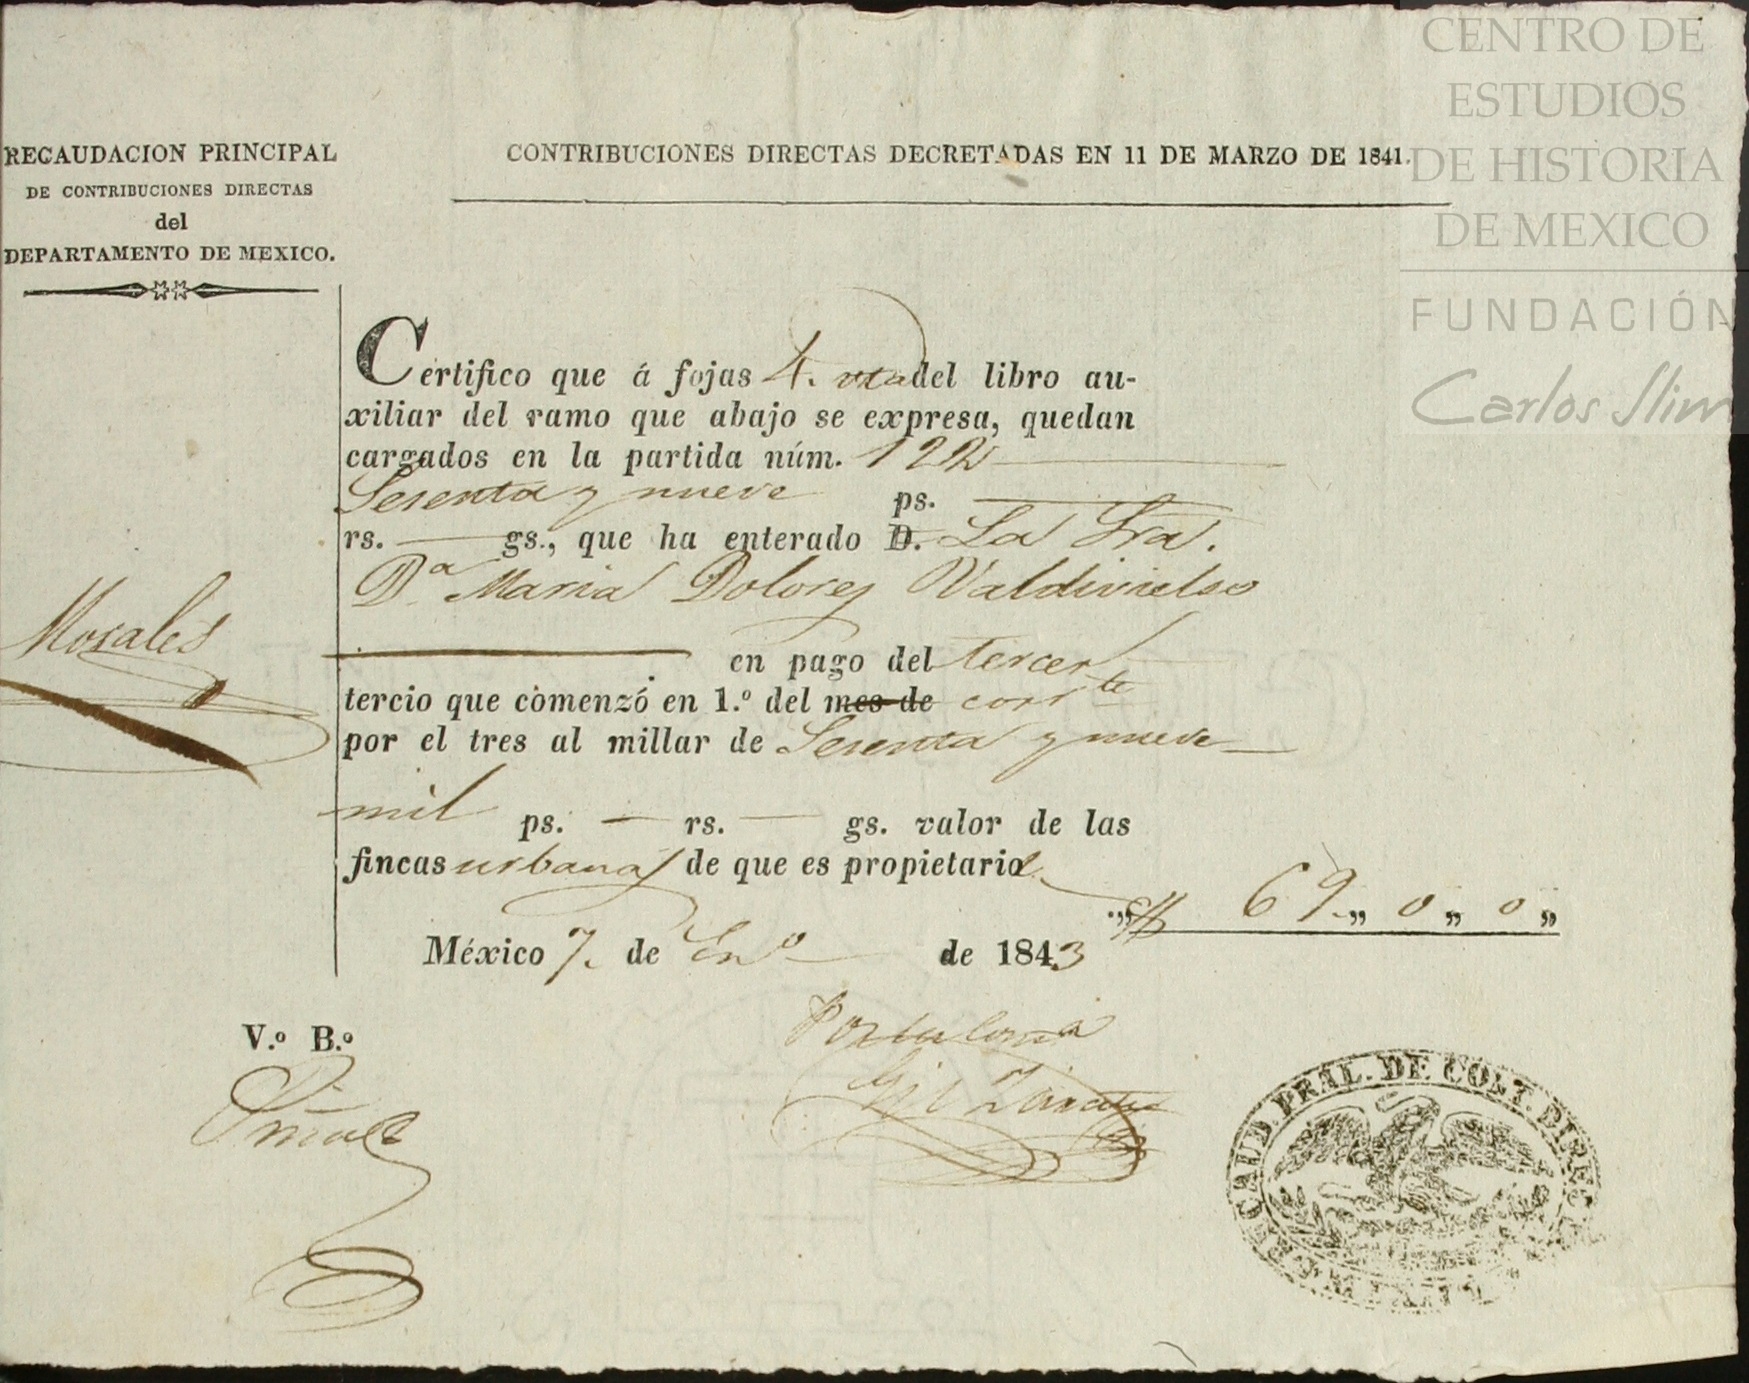 CENTRO DE
ESTUDIOS
DE HISTORIA
DE MEXICO
FUNDACIÓN
Carlos Slim
RECAUDACION PRINCIPAL
DE CONTRIBUCIONES DIRECTAS
del
DEPARTAMENTO DE MEXICO.
CONTRIBUCIONES DIRECTAS DECRETADAS EN 11 DE MARZO DE 1841.
Certifico que á fojas 4. vta del libro au-
xiliar del ramo que abajo se expresa, quedan
cargados en la partida núm. 122
Sesenta y nueve ps.
rs. gs., que ha enterado D. La Sra.
Da. Maria Dolores Valdivielso
en pago del tercer
tercio que comenzó en 1.º del mes de corrte
por el tres al millar de Sesenta y nueve
mil ps. rs. gs. valor de las
fincas urbanas de que es propietaria
69 „ 0 „ 0 „
México 7. de Eno de 1843
Morales
V.º B.º
Gil Zarate
RECAUD. PRAL. DE CONT. DIREC.